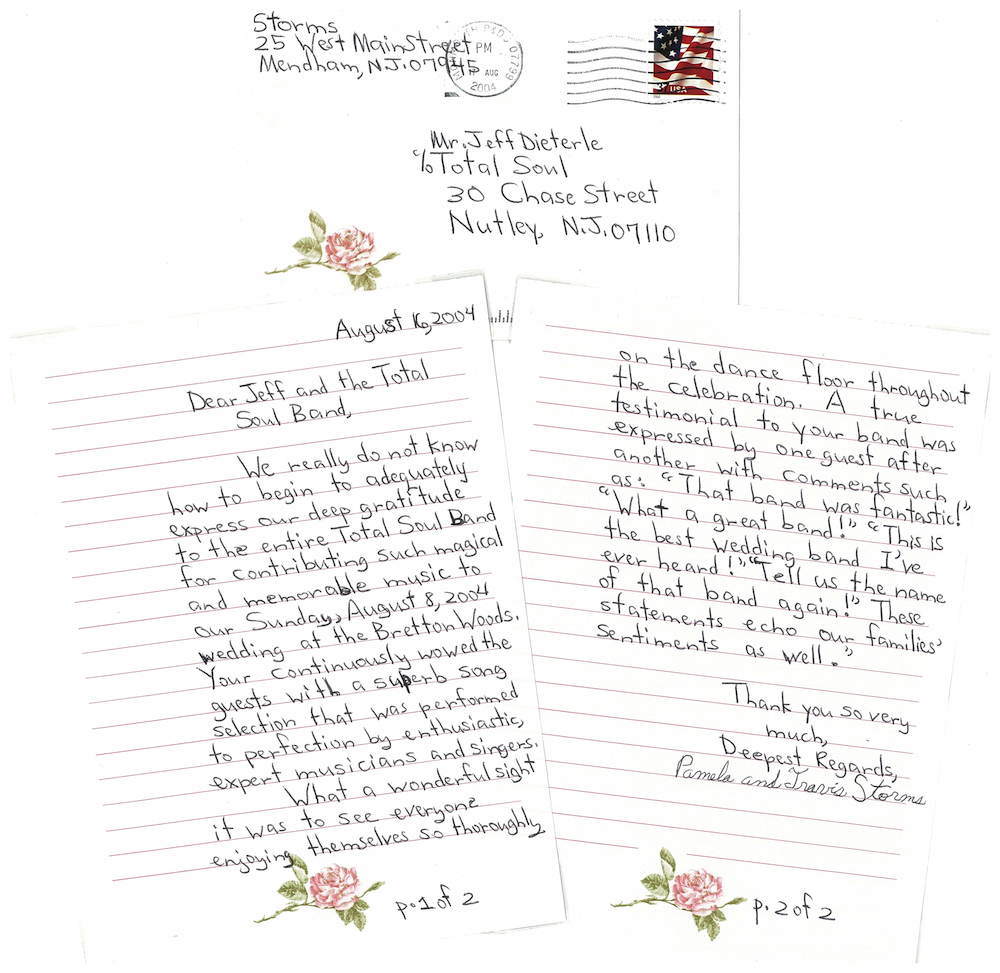 Storms
25 West Main Street
Mendham, N.J. 07945
PM
17 AUG
2004
07799
37 USA
Mr. Jeff Dieterle
c/o Total Soul
30 Chase Street
Nutley, N.J. 07110
August 16, 2004
Dear Jeff and the Total
Soul Band,
We really do not know
how to begin to adequately
express our deep gratitude
to the entire Total Soul Band
for contributing such magical
and memorable music to
our Sunday, August 8, 2004
wedding at the Bretton Woods.
Your continuously wowed the
guests with a superb song
selection that was performed
to perfection by enthusiastic,
expert musicians and singers.
What a wonderful sight
it was to see everyone
enjoying themselves so thoroughly
p. 1 of 2
on the dance floor throughout
the celebration. A true
testimonial to your band was
expressed by one guest after
another with comments such
as: "That band was fantastic!"
"What a great band!" "This is
the best wedding band I've
ever heard!" "Tell us the name
of that band again!" These
statements echo our families'
sentiments as well."
Thank you so very
much,
Deepest Regards,
Pamela and Travis Storms
p. 2 of 2